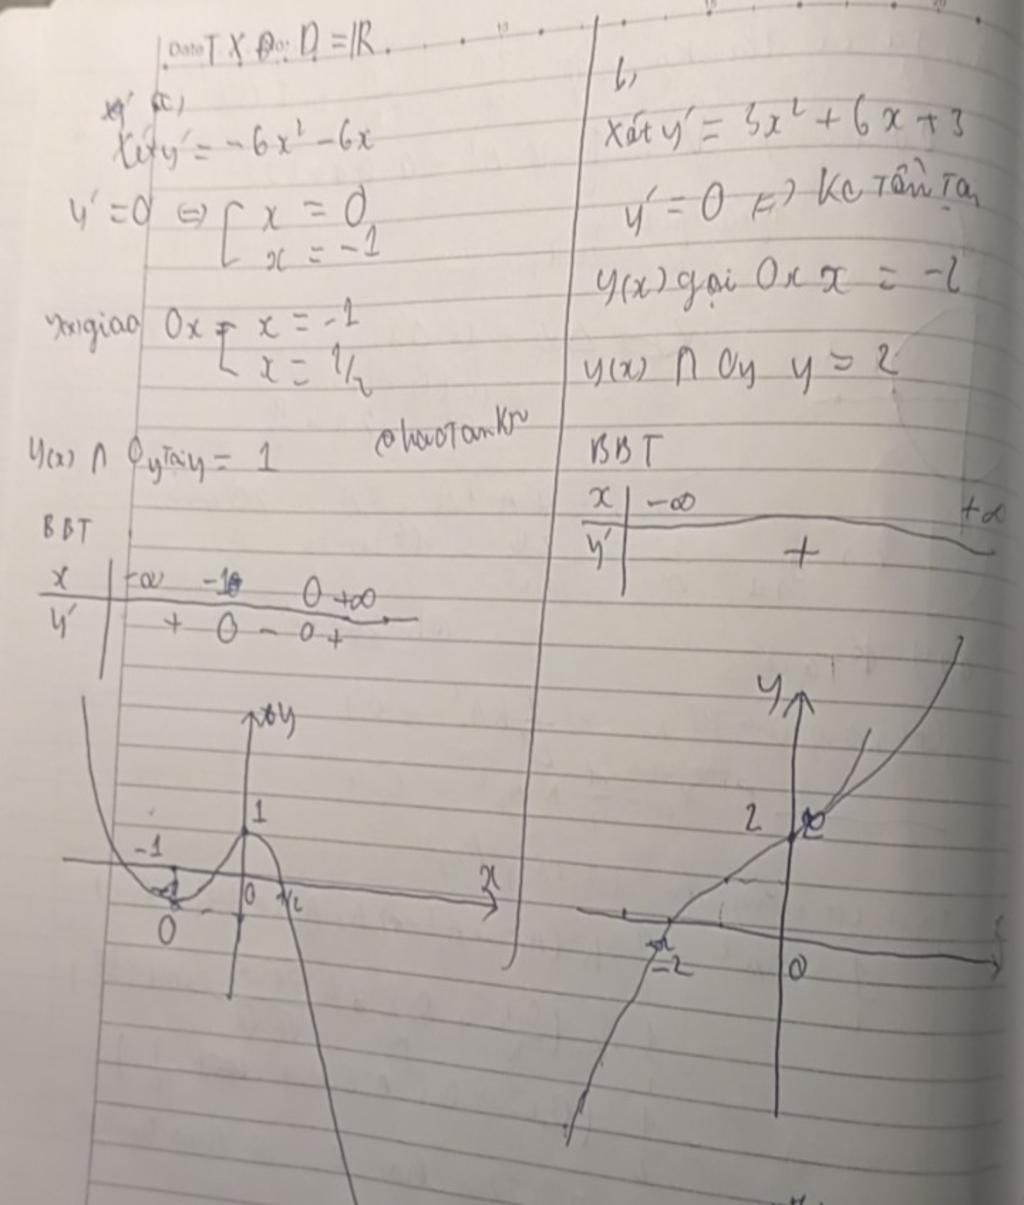 Date TXĐ: D = ℝ.
a,
Xét y' = -6x² - 6x
y' = 0 ⇔ [ x = 0
x = -1
giao Ox [ x = -1
x = 1/2
y(x) ∩ Oy Tại y = 1
BBT
x | -∞ -1 0 +∞
y' | + 0 - 0 +
y
1
-1
x
0
1/2
0
b,
Xét y' = 3x² + 6x + 3
y' = 0 ⇔ Kc Tồn Tại
y(x) gọi Ox x = -2
y(x) ∩ Oy y = 2
BBT
x | -∞ +∞
y' | +
y
2
-2
0